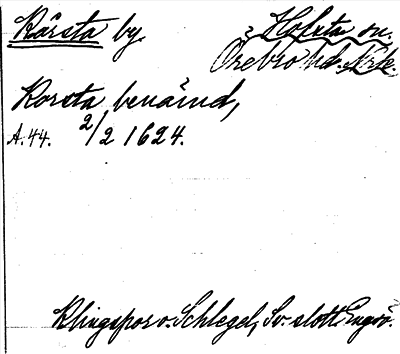 Kårsta by.
Hofsta sn.
Örebro hd. Nrke.
Korsta benämd,
A. 44. 2/2 1624.
Klingspor o. Schlegel, Sv. slott. Engsö.